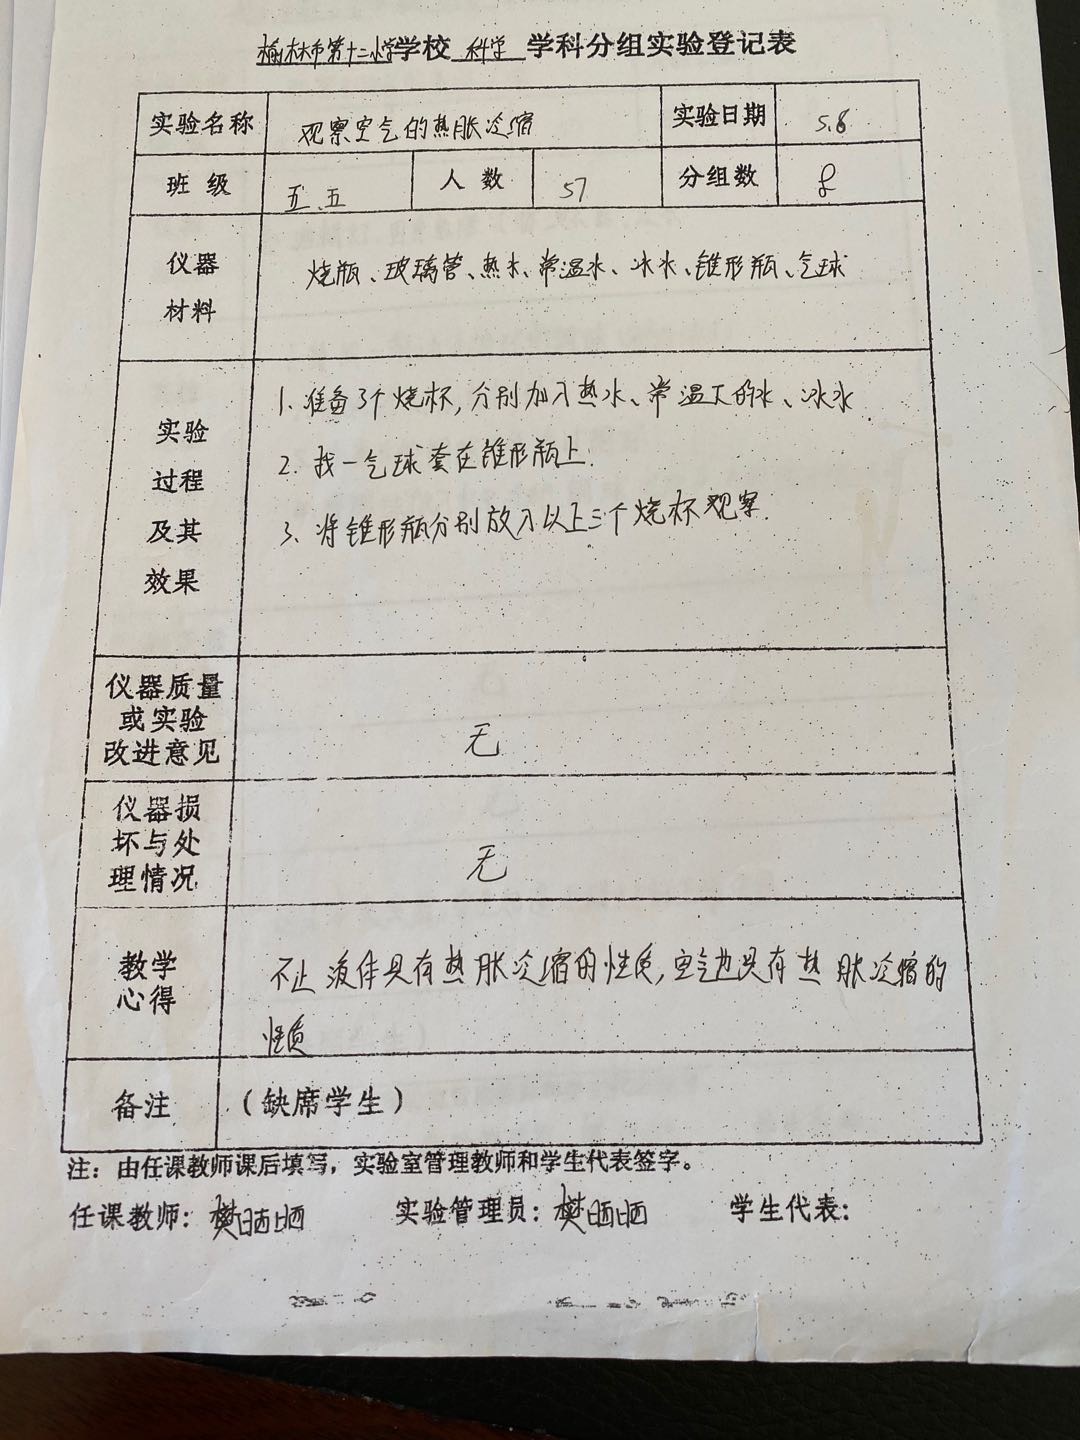 榆林市第十二小学学校 科学 学科分组实验登记表
实验名称 观察空气的热胀冷缩 实验日期 5.8
班 级 五.五 人 数 57 分组数 8
仪器
材料
烧瓶、玻璃管、热水、常温水、冰水、锥形瓶、气球
实验
过程
及其
效果
1. 准备3个烧杯,分别加入热水、常温下的水、冰水.
2. 找一气球套在锥形瓶上.
3. 将锥形瓶分别放入以上三个烧杯观察.
仪器质量
或实验
改进意见
无
仪器损
坏与处
理情况
无
教学
心得
不止液体具有热胀冷缩的性质,空气也具有热胀冷缩的
性质
备注 (缺席学生)
注：由任课教师课后填写，实验室管理教师和学生代表签字。
任课教师：樊晒晒 实验管理员：樊晒晒 学生代表：